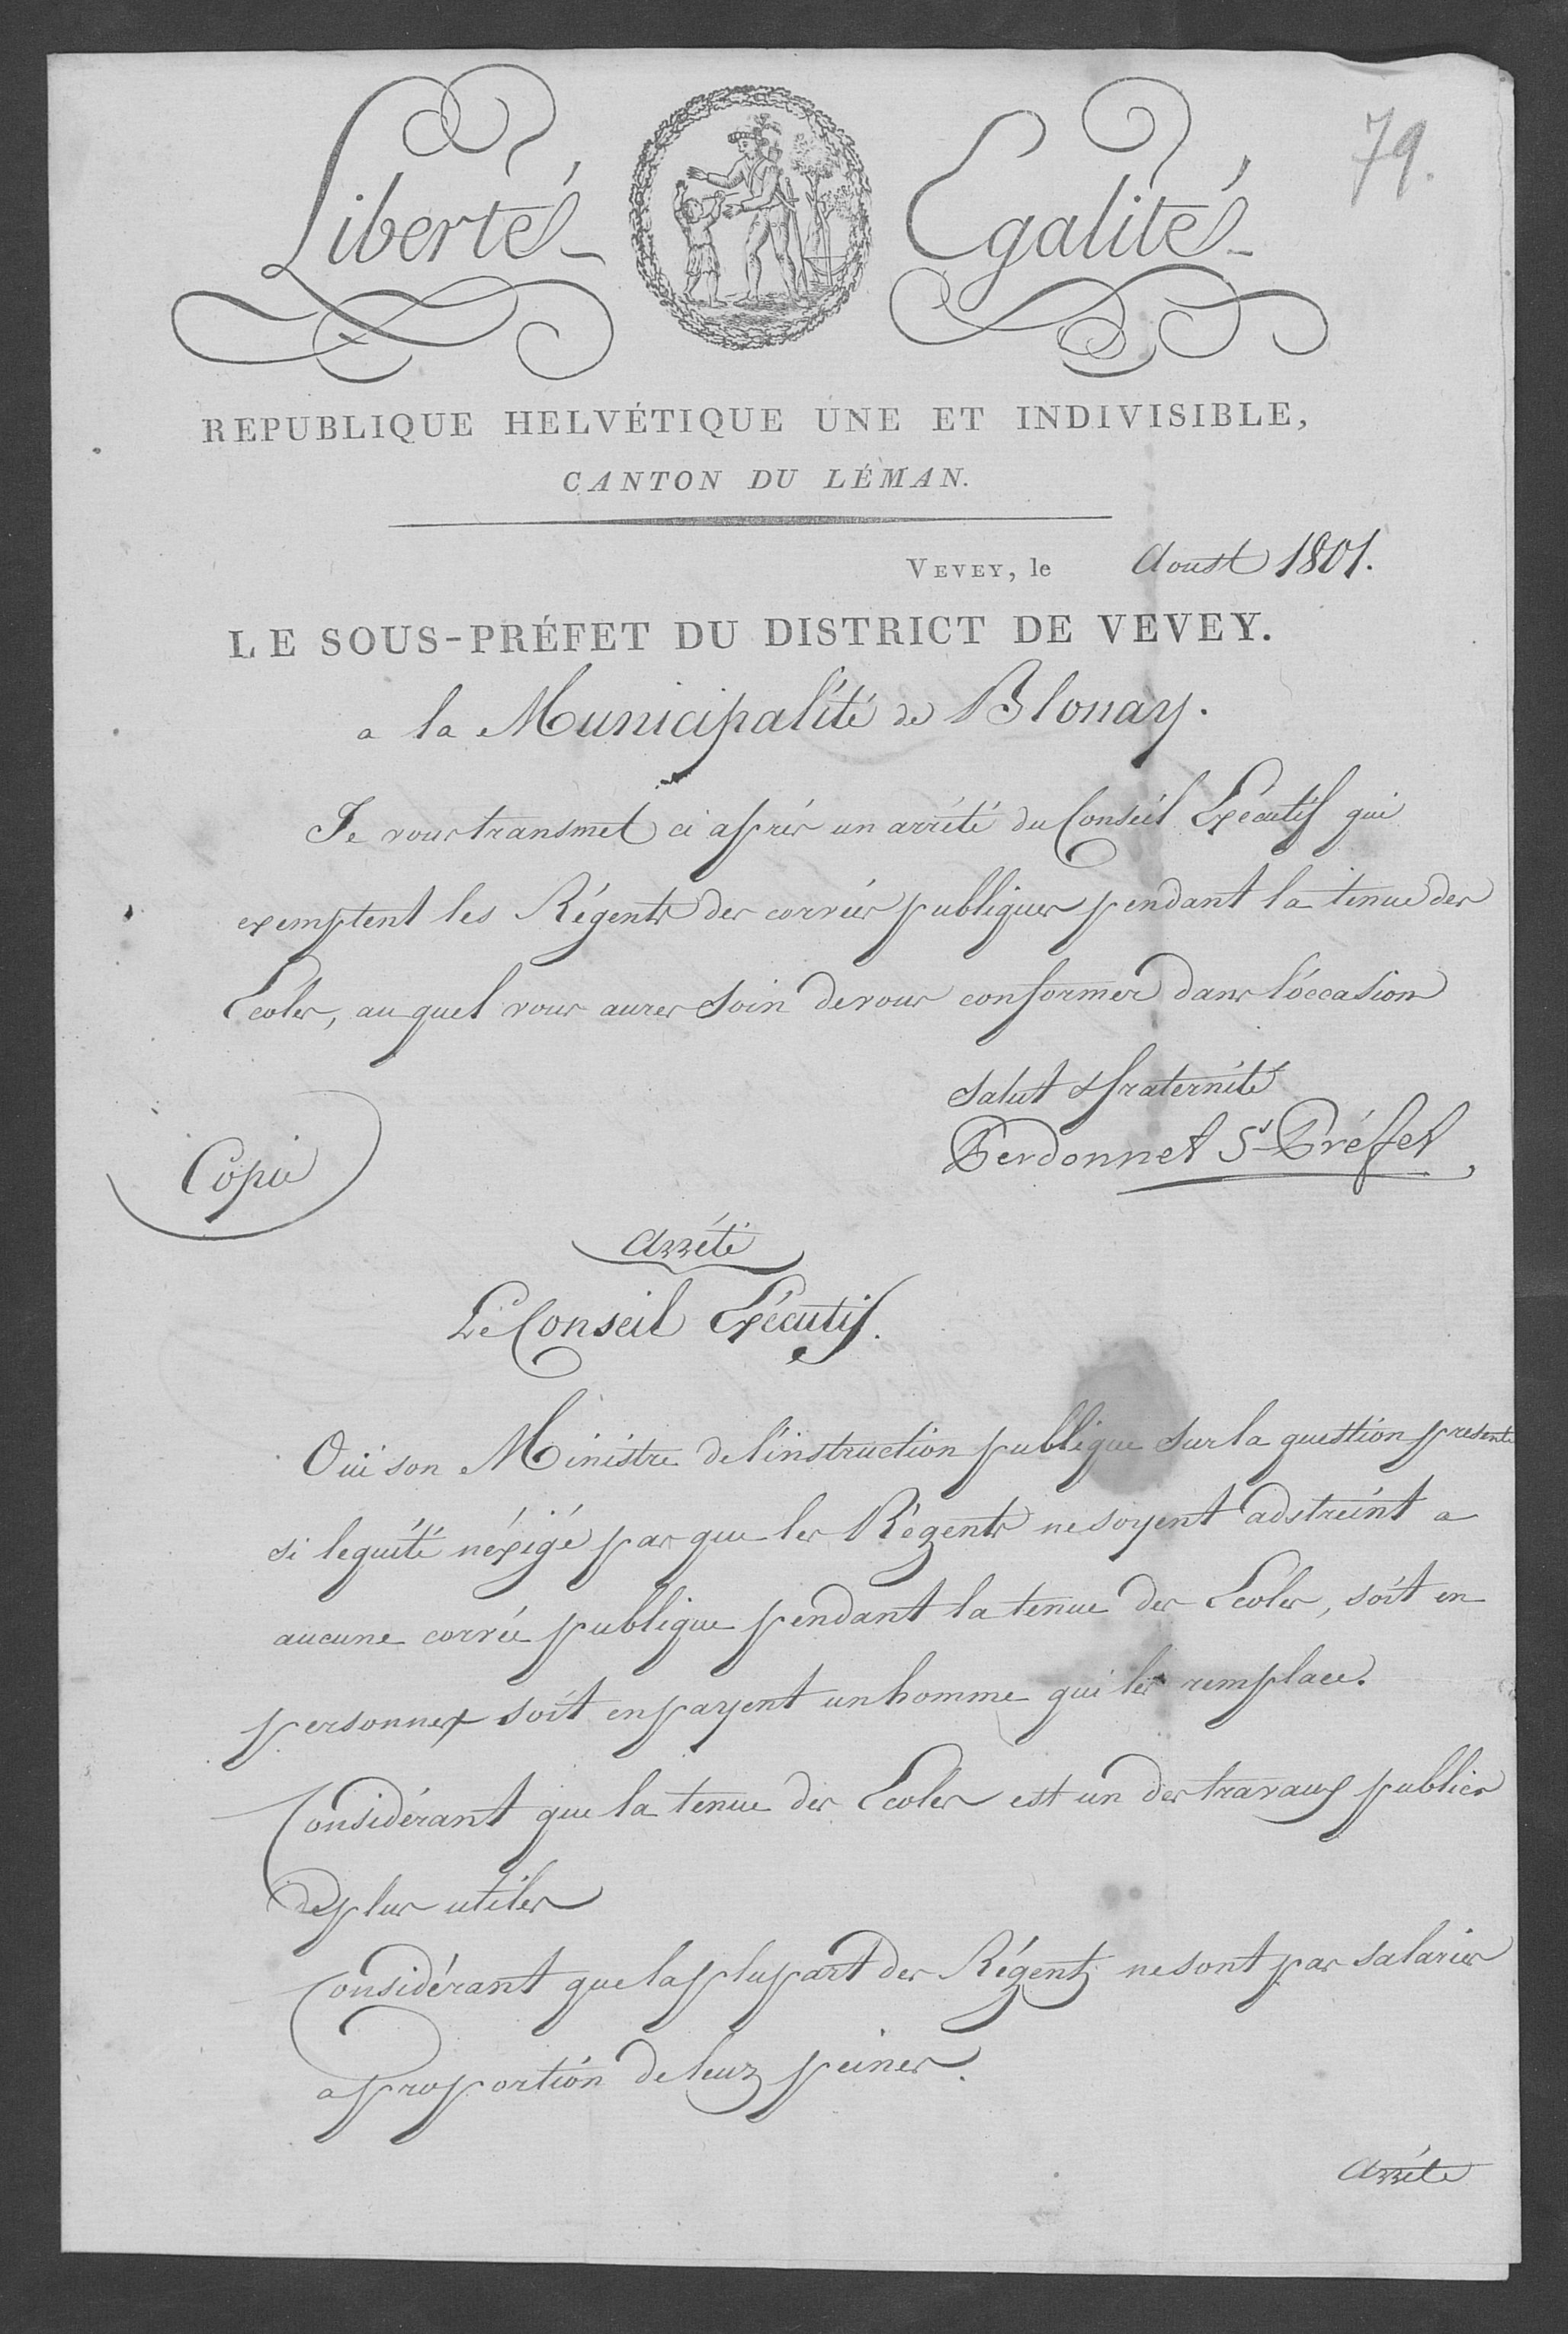 79.
Liberté Egalité
REPUBLIQUE HELVÉTIQUE UNE ET INDIVISIBLE,
CANTON DU LÉMAN.
VEVEY, le Aoust 1801.
LE SOUS-PRÉFET DU DISTRICT DE VEVEY.
a la Municipalité de Blonay.
Je vous transmet ci après un arrété du Conseil Exécutif qui
exemptent les Régents des corvées publiques pendant la tenue des
Ecoles, auquel vous aures soin de vous conformer dans l'occasion
Salut & fraternité
Perdonnet Ss Préfet
Copie
Arrété
Le Conseil Exécutif.
Ouï son Ministre de l'instruction publique sur la question presente
si lequité néxigé pas que les Régents ne soyent adstreint a
aucune corvée publique pendant la tenue des Ecoles, soit en
personnex soit en payent un homme qui les remplace.
Considérant que la tenue des Ecoles est un des travaux publics
des plus utiles
Considérant que la plupart des Régents ne sont pas salariés
a proportion de leurs peines.
Arréte